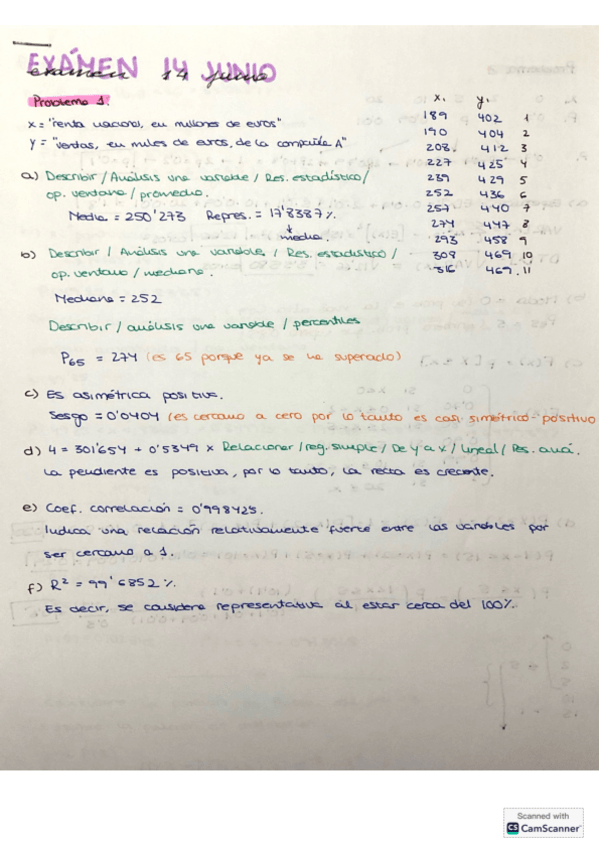 EXÁMEN 14 JUNIO
examen 14 junio
Problema 1.
x = "renta nacional, en millones de euros"
y = "ventas, en miles de euros, de la compañía A"
xi yi
189 402 1
190 404 2
208. 412 3
227 425 4
239 429 5
252 436 6
257 440 7
274 447 8
293 458 9
308 469 10
316 469. 11
a) Describir / Análisis una variable / Res. estadístico /
op. ventana / promedio.
Media = 250'273 Repres. = 17'8387%
↓
media.
b) Describir / Análisis una variable / Res. estadístico /
op. ventana / mediana.
Mediana = 252
Describir / análisis una variable / percentiles
P65 = 274 (es 65 porque ya se ha superado)
c) Es asimétrica positiva.
Sesgo = 0'0404 (es cercano a cero por lo tanto es casi simétrico-positivo
d) Y = 301'654 + 0'5349 x Relacionar / reg. simple / De y a x / lineal / Res. aná.
La pendiente es positiva, por lo tanto, la recta es creciente.
e) Coef. correlación = 0'998425.
Indica una relación relativamente fuerte entre las variables por
ser cercano a 1.
f) R² = 99'6852%.
Es decir, se considera representativa al estar cerca del 100%.
Scanned with
CS CamScanner